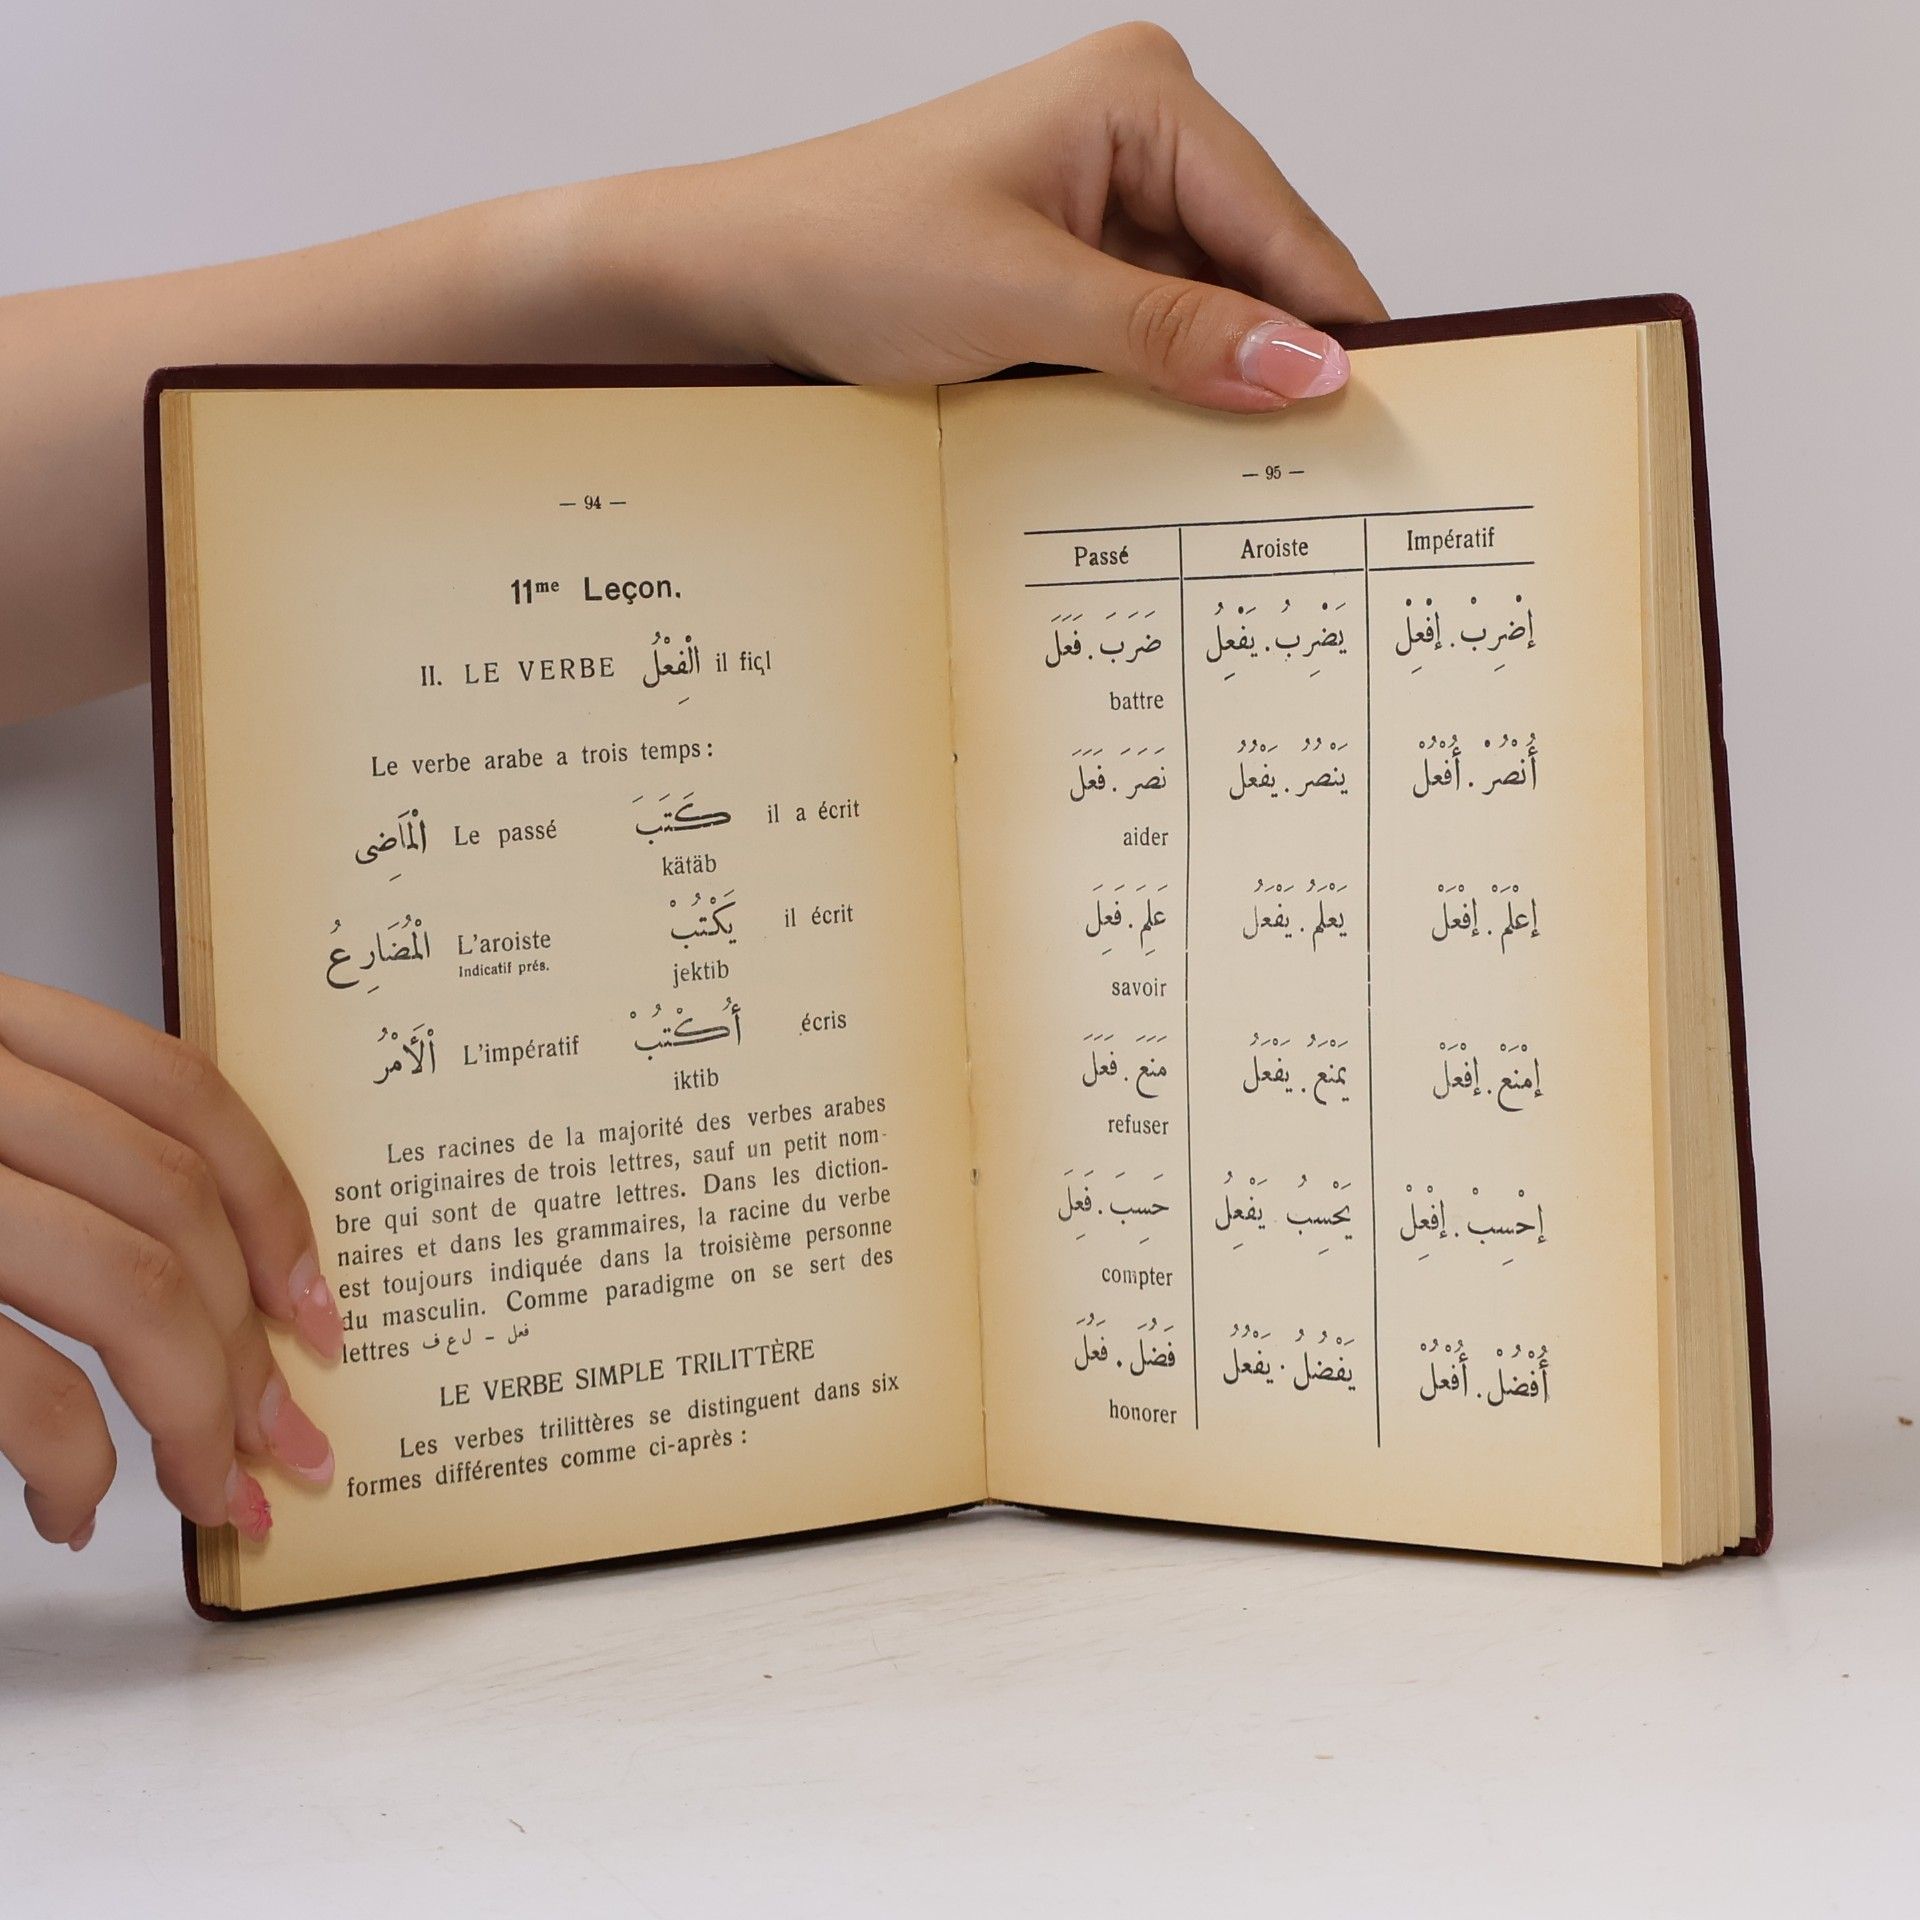 — 94 —
11me Leçon.
II. LE VERBE الْفِعْلُ il fiçl
Le verbe arabe a trois temps:
الْمَاضِى Le passé كَتَبَ il a écrit
kätäb
الْمُضَارِعُ L'aroiste يَكْتُبْ il écrit
Indicatif prés.
jektib
الْأَمْرُ L'impératif أُكْتُبْ écris
iktib
Les racines de la majorité des verbes arabes
sont originaires de trois lettres, sauf un petit nom-
bre qui sont de quatre lettres. Dans les diction-
naires et dans les grammaires, la racine du verbe
est toujours indiquée dans la troisième personne
du masculin. Comme paradigme on se sert des
lettres فعل – ف ع ل
LE VERBE SIMPLE TRILITTÈRE
Les verbes trilittères se distinguent dans six
formes différentes comme ci-après :
— 95 —
Passé Aroiste Impératif
ضَرَبَ . فَعَلَ يَضْرِبُ . يَفْعِلُ إِضْرِبْ . إِفْعِلْ
battre
نَصَرَ . فَعَلَ يَنْصُرُ . يَفْعُلُ أُنْصُرْ . أُفْعُلْ
aider
عَلِمَ . فَعِلَ يَعْلَمُ . يَفْعَلُ إعْلَمْ . إفْعَلْ
savoir
مَنَعَ . فَعَلَ يَمْنَعُ . يَفْعَلُ إمْنَعْ . إفْعَلْ
refuser
حَسِبَ . فَعِلَ يَحْسِبُ يَفْعِلُ إحْسِبْ . إفْعِلْ
compter
فَضُلَ . فَعُلَ يَفْضُلُ . يَفْعُلُ أُفْضُلْ . أُفْعُلْ
honorer